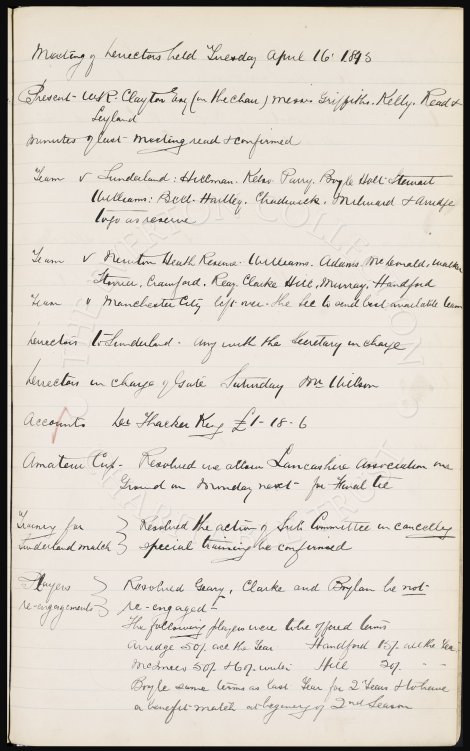 Meeting of Directors held Tuesday April 16th 1895
Present - W.R. Clayton Esq (in the chair) Messrs Griffiths. Kelly. Read &
Leyland
Minutes of last meeting read & confirmed
Team v Sunderland: Hillman. Kelso Parry. Boyle Holt Stewart
Williams: Bell. Hartley. Chadwick. Milward & Arridge
as reserve
Team v Newton Heath Reserve. Williams. Adams. McDonald, Walker
Storrier, Crawford. Reay. Clarke Hill, Murray, Handford
Team v Manchester City left over. The Sec to send best available team
Directors to Sunderland - any with the Secretary in charge
Directors in charge of Gate Saturday Mr Wilson
Accounts Dr Thacker King £1-18-6
Amateur Cup - Resolved we allow Lancashire Association use
Ground on Monday next for Final tie
Training for } Resolved the action of Sub Committee in cancelling
Sunderland match } special training be confirmed
Players } Resolved Geary, Clarke and Boylan be not
re-engagements } re-engaged -
The following players were to be offered terms
Arridge 50/- all the Year Handford 15/- all the Year
McInnes 50/- & 60/- Hill 20/- " "
Boyle same terms as last Year for 2 Years & to have
a benefit match at beginning of 2nd Season
THE EVERTON COLLECTION CHARITABLE TRUST